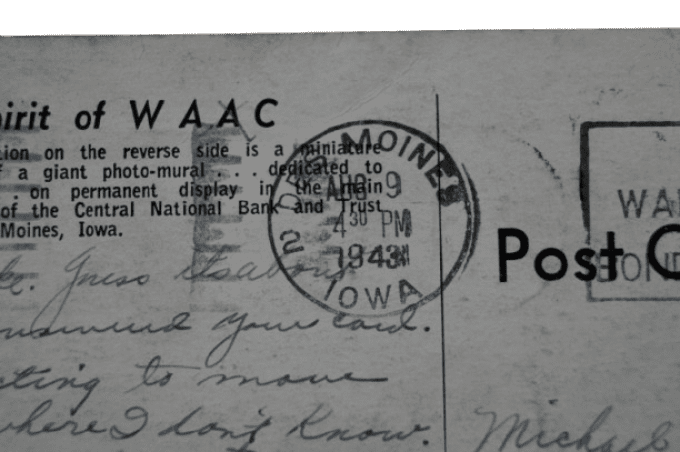 irit of WAAC
tion on the reverse side is a miniature
f a giant photo-mural . . . dedicated to
. on permanent display in the main
of the Central National Bank and Trust
Moines, Iowa.
DES MOINES
AUG 9
4 30 PM
1943
2
IOWA
WAR
BOND
Post C
Guess its about
your card.
ting to move
where I don't know.
Michael